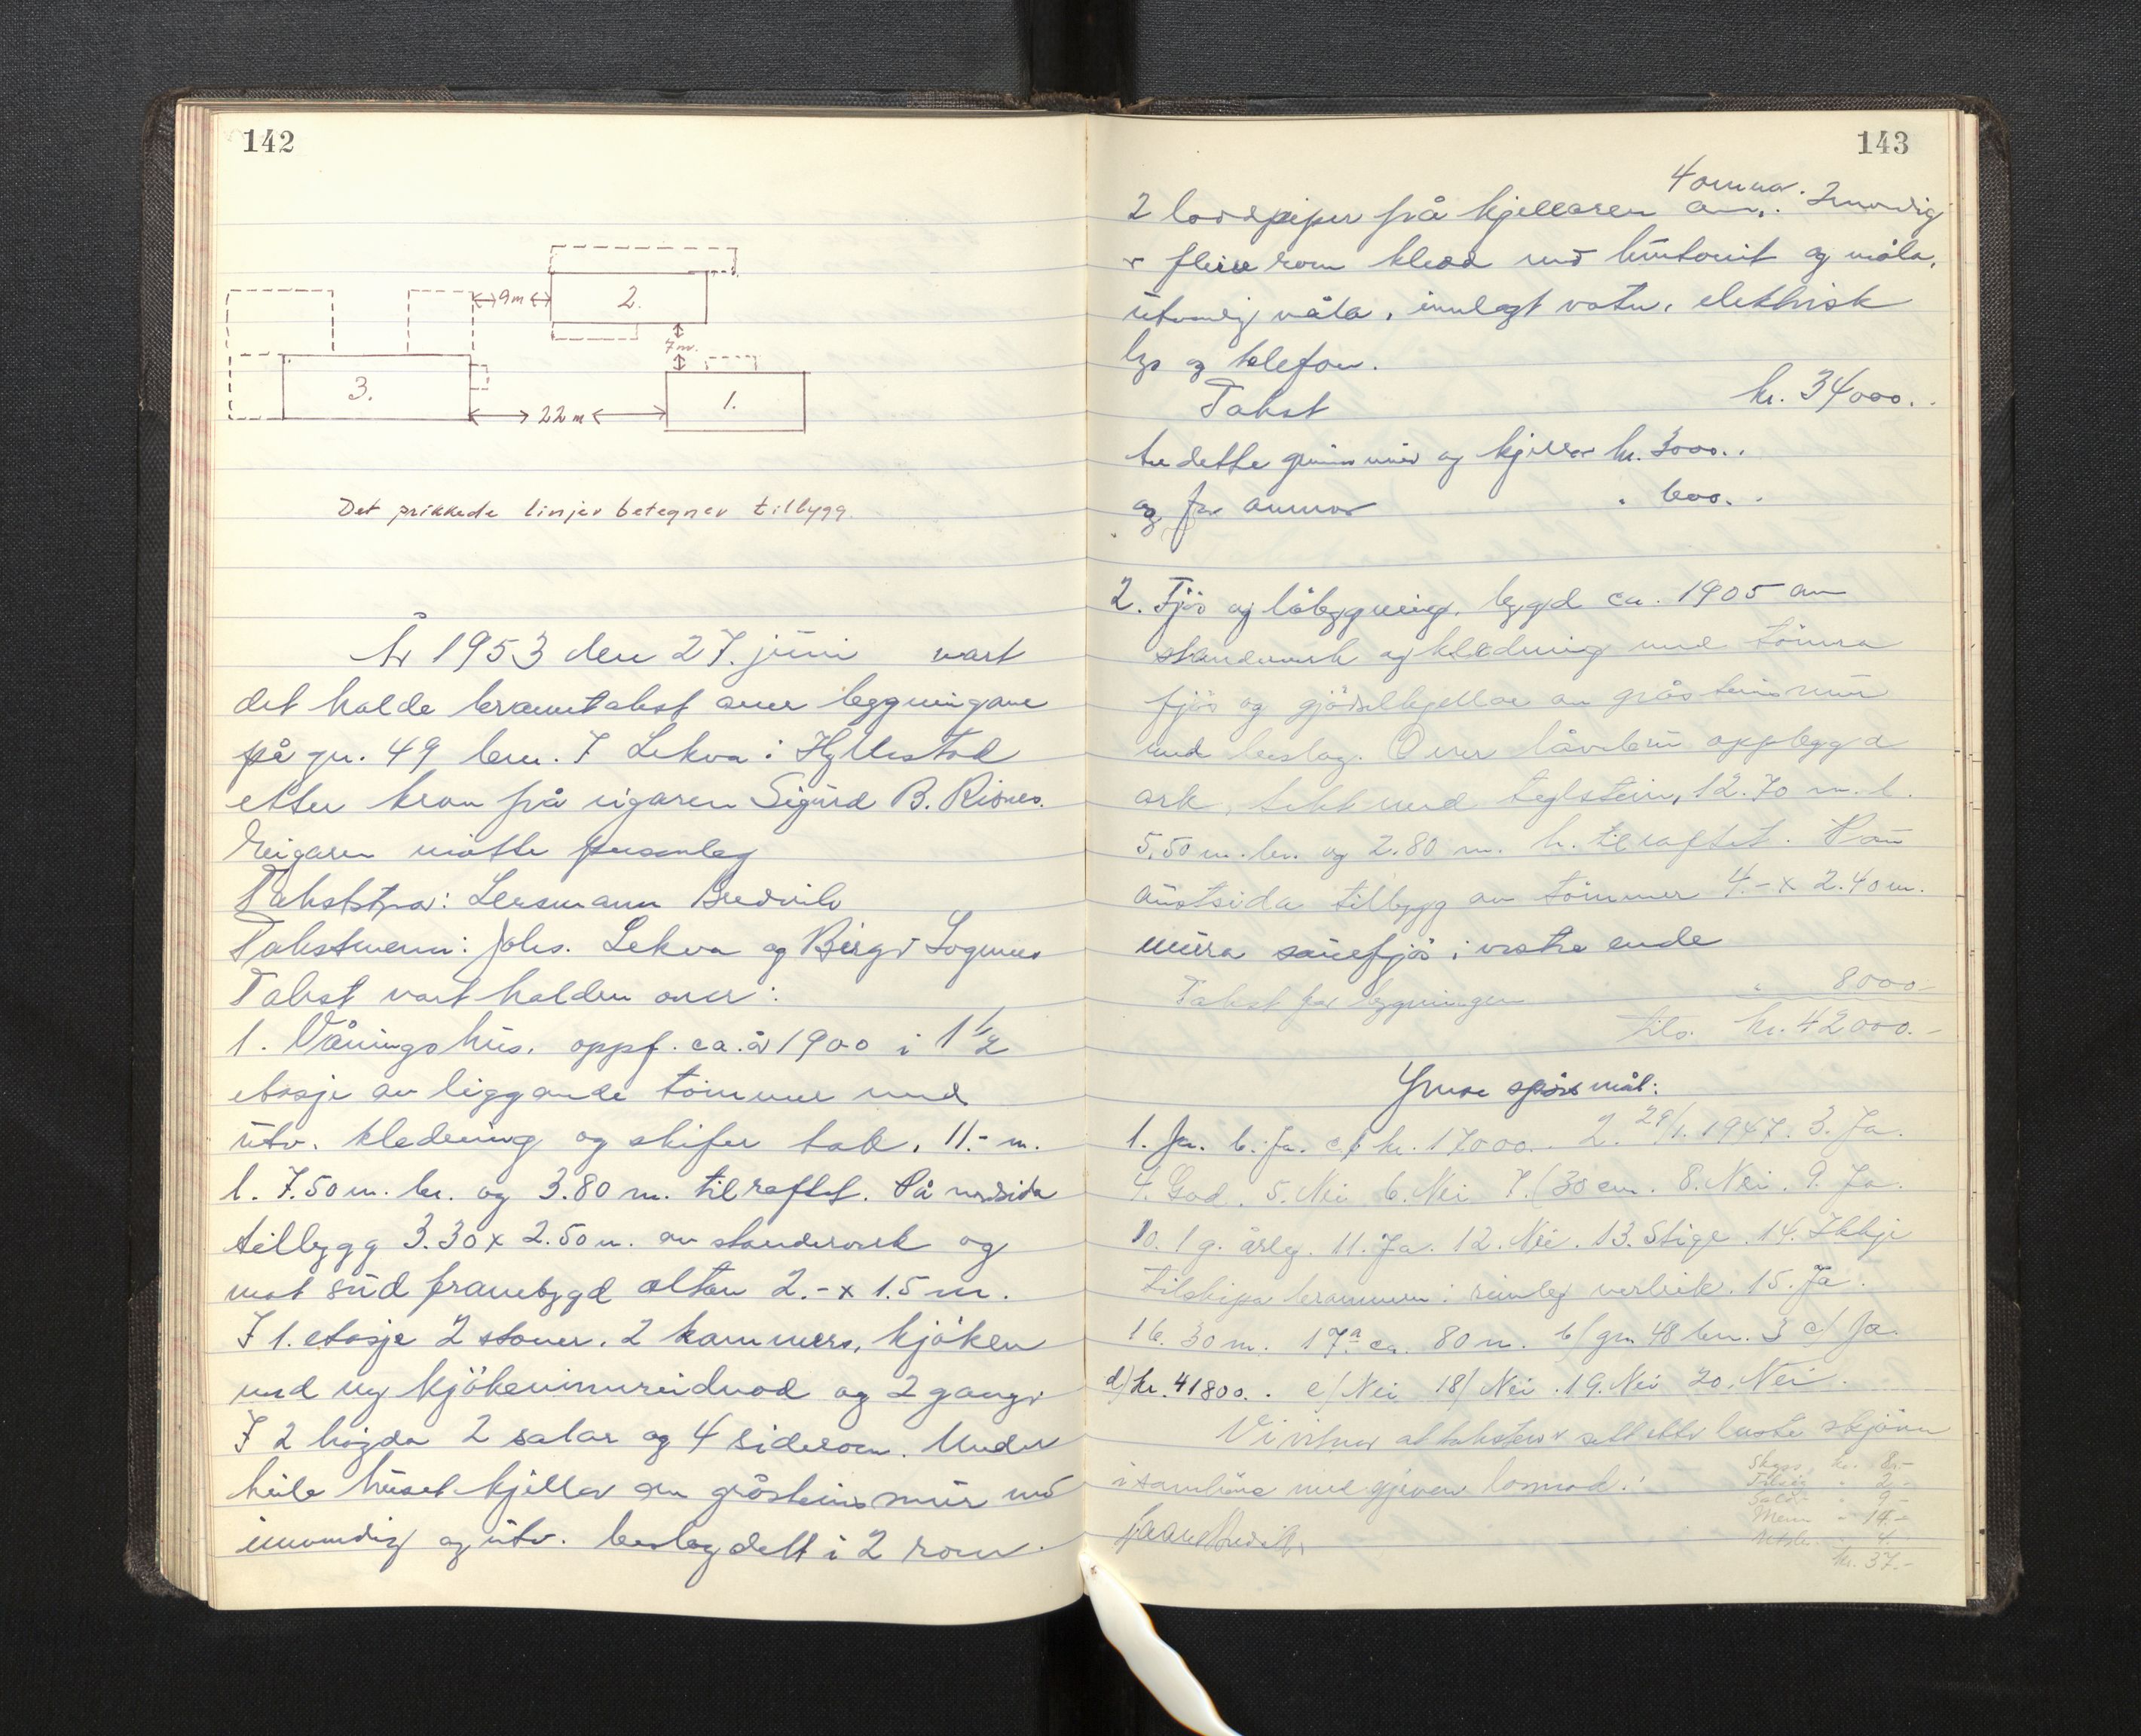 142
2.
9m
7m.
3.
1.
22m
Det prikkede linjer betegner tilbygg.
År 1953 den 27. juni vart
det halde branntakst over byggningane
på gn. 49 bn. 7 Lekva i Hyllestad
etter krav frå eigaren Sigurd B. Risnes.
Eigaren møtte personleg
Takststyrar: Lensmann Bredvik
Takstmenn: Johs. Lekva og Birger Sognnes
Takst vart halden over:
1. Våningshus, oppf. ca. år 1900 i 1 1/2
etasje av liggande tömmer med
utv. kledning og skifer tak, 11.- m.
l. 7.50 m. br. og 3.80 m. til raftet. På nordsida
tilbygg 3.30 x 2.50 m. av standverk og
mot süd frambygd altan 2.- x 1.5 m.
I 1. etasje 2 stover, 2 kammers, kjöken
med ny kjökeninnreidnad og 2 gangar
I 2 högda 2 salar og 4 siderom. Under
heile huset kjellar av gråsteins mur med
innvendig og utv. beslag delt i 2 rom.
143
4 omnar.
2 loddpiper frå kjellaren av. Innvendig
er fleire rom kledd med huntonit og måla,
utvendig måla, innlagt vatn, elektrisk
lys og telefon.
Takst kr. 34000.
av dette grunnmur og kjellar kr. 3000..
og for omnar " 600..
2. Fjös og låbyggning, bygd ca. 1905 av
standverk og kledning med tömra
fjös og gjödselkjellar av gråsteinsmur
med beslag. Over låvebru oppbygd
ark, tekt med teglstein, 12.70 m. l.
5.50 m. br. og 2.80 m. h. til raftet. På
austsida tilbygg av tömmer 4.- x 2.40 m.
mura sauefjös i vestre ende
Takst for byggningen " 8000.-
tils. kr. 42000.-
Ymse spörsmål:
1. Ja. b. Ja. c/ kr. 17000.. 2. 29/1. 1947. 3. Ja.
4. God. 5. Nei 6. Nei 7. (30 cm. 8. Nei. 9. Ja.
10. 1 g. årleg. 11. Ja. 12. Nei. 13. Stige. 14. Ikkje
tilskipa brannvern i rimeleg verleik. 15. Ja.
16. 30 m. 17 a ca. 80 m. b/ gn. 48 bn. 3 c/ Ja.
d) kr. 41800.. e/ Nei 18/ Nei. 19. Nei 20. Nei.
Vi vitnar at taksten er sett etter beste skjönn
i samhöve med gjeven lovnad.
Skyss kr. 8.-
" 2.-
" 9.-
Menn " 14.-
" 4.-
kr. 37.-